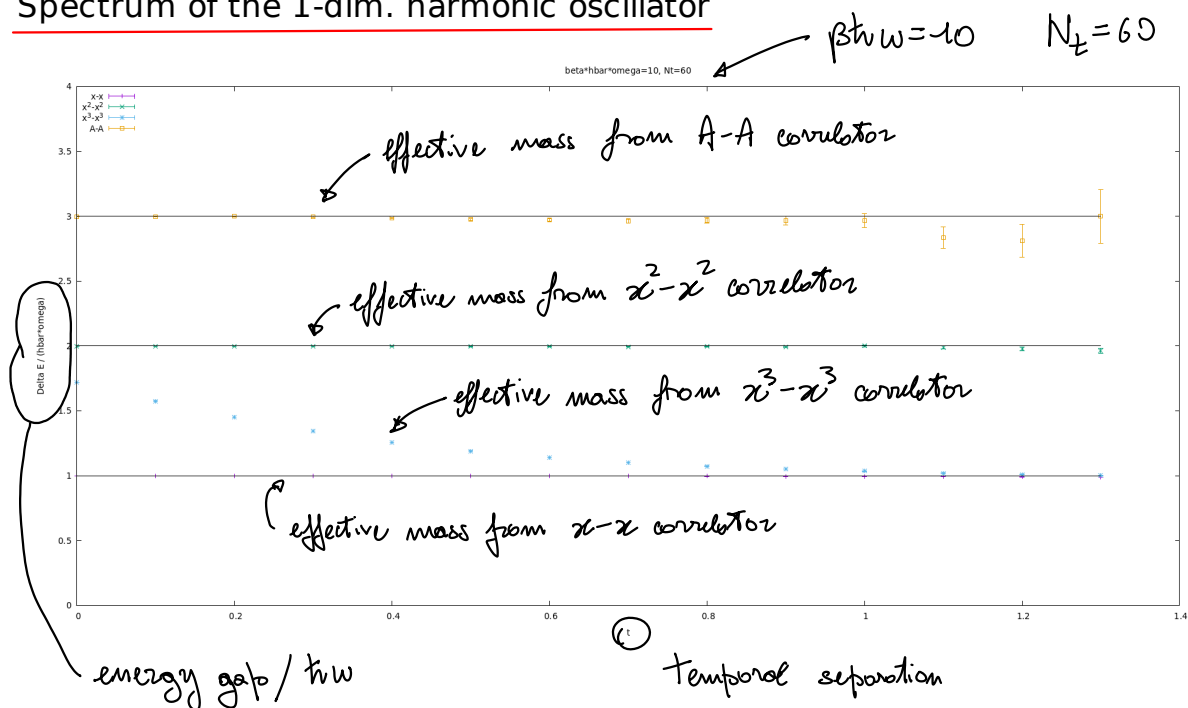 Spectrum of the 1-dim. harmonic oscillator
βħω=10 N_t=60
beta*hbar*omega=10, Nt=60
4
x-x
x²-x²
x³-x³
A-A
effective mass from A-A correlator
3.5
3
2.5
effective mass from x²-x² correlator
2
Delta E / (hbar*omega)
effective mass from x³-x³ correlator
1.5
1
effective mass from x-x correlator
0.5
0
0 0.2 0.4 0.6 0.8 1 1.2 1.4
t
energy gap/ħω
temporal separation